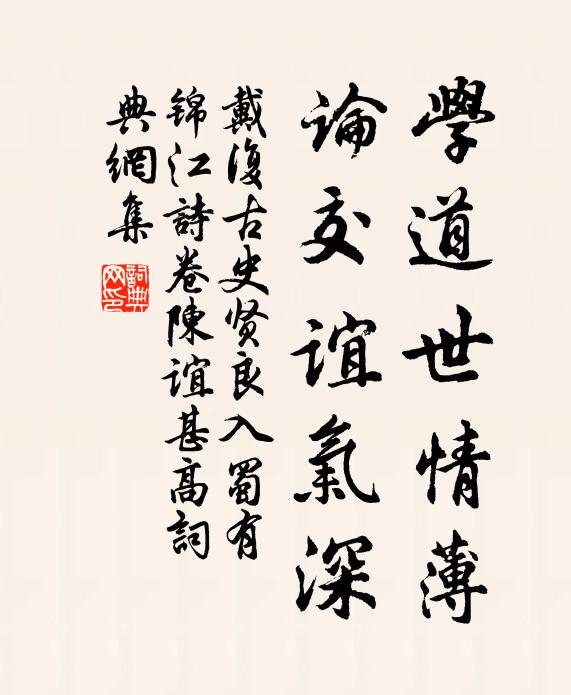 學道世情薄
論交誼氣深
戴復古史贤良入蜀有
锦江詩卷陳誼甚高詞
典網集
詞典网印